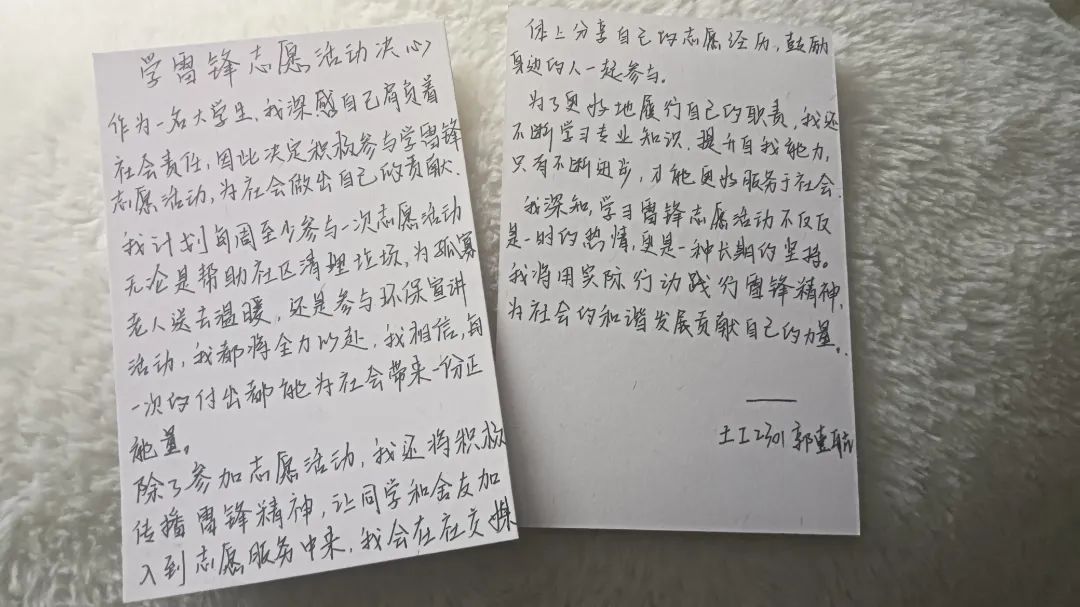 学雷锋志愿活动决心
作为一名大学生，我深感自己肩负着
社会责任，因此决定积极参与学雷锋
志愿活动，为社会做出自己的贡献.
我计划每周至少参与一次志愿活动
无论是帮助社区清理垃圾，为孤寡
老人送去温暖，还是参与环保宣讲
活动，我都将全力以赴，我相信，每
一次的付出都能为社会带来一份正
能量。
除了参加志愿活动，我还将积极
传播雷锋精神，让同学和舍友加
入到志愿服务中来，我会在社交媒
体上分享自己的志愿经历，鼓励
身边的人一起参与。
为了更好地履行自己的职责，我还
不断学习专业知识，提升自我能力，
只有不断进步，才能更好服务于社会.
我深知，学习雷锋志愿活动不仅仅
是一时的热情，更是一种长期的坚持。
我将用实际行动践行雷锋精神，
为社会的和谐发展贡献自己的力量。
——
土工2301 郭